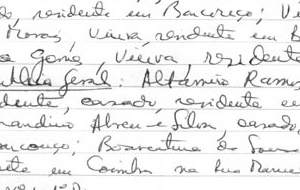 do, residente em Barcouço; Vi
Moraes, Viúva, residente em B
Gomes, Viúva, residente
Geral: Altamiro Ramos
dente, casado, residente e
nandino Abreu e Silva, casado,
arcouço; Boaventura de Sousa
te em Coimbra na Rua Manue